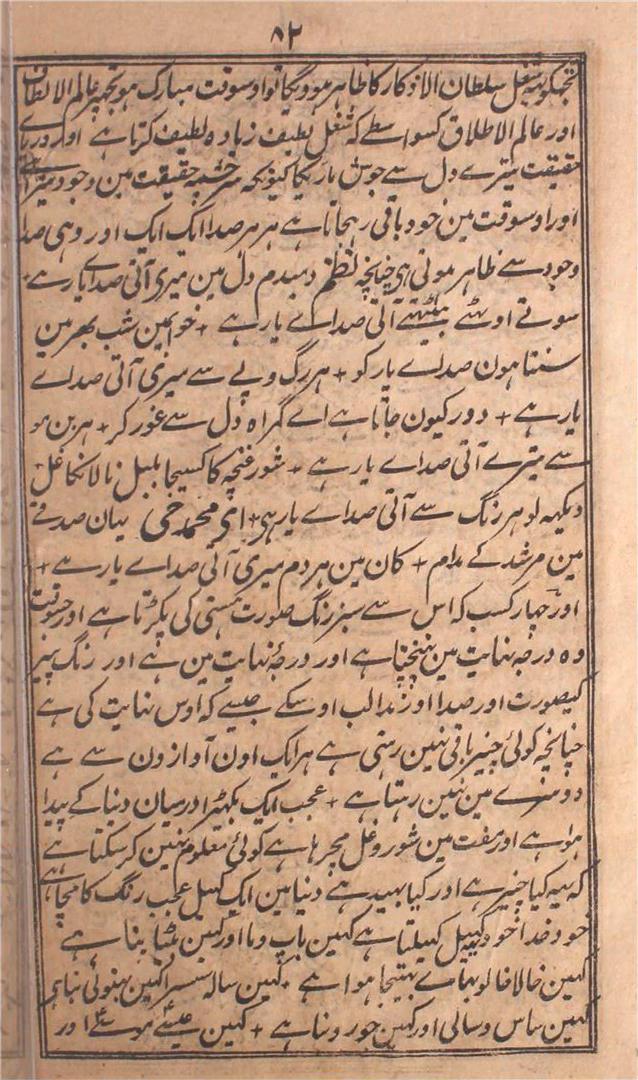 ۸۲
تجکو یہ شغل سلطان الاذکار کا ظاہر ہوویگا تو اوسوقت مبارک ہو تجھپر عالم الاطلاق
اور عالم الاطلاق کسواسطے کہ شغل لطیف زیادہ لطیف کرتا ہے اور دریاے
حقیقت تیرے دل سے جوش ماریگا کیونکہ سرچشمہ حقیقت مین وجود تیرا ہے
اور اوسوقت مین خود باقی رہجاتا ہے ہر ہر صدا ایک ایک اور وہی صدا
وجود سے ظاہر ہوتی ہی چنانچہ نظم دمبدم دل مین میری آتی صداے یار ہے +
سوتے اوٹھتے بیٹھتے آتی صداے یار ہے + خوابمین شب بھر مین
سنتا ہون صداے یار کو + ہر رگ وپے سے میری آتی صداے
یار ہے + دور کیون جاتا ہے اے گمراہ دل سے غور کر + ہر بن مو
سے تیرے آتی صداے یار ہے + شور غنچہ کا کسیجا بلبل نالانکا غل
دیکھہ لو ہر رنگ سے آتی صداے یار ہی + ای محمد جی بیان صدقے
مین مرشد کے مدام + کان مین ہردم میری آتی صداے یار ہے +
اور چہار کسب کہ اس سے سبز رنگ صورت ہستی کی پکڑتا ہے اور جسوقت
وہ درجہ نہایت مین پہنچتا ہے اور درجہ نہایت مین ہے اور رنگ
کیصورت اور صدا اور اوسکے جیسے کہ اوس نہایت کی ہے
چنانچہ کوئی چیز باقی نہین رہتی ہے ہر ایک اون آوازون سے ہے
دوسرے مین نہین رہتا ہے + عجب ایک بکھیڑا درمیان دنیا کے پیدا
ہوا ہے اور مفت مین شور وغل مچ رہا ہے کوئی معلوم نہین کرسکتا ہے
کہ یہ کیا چیز ہے اور کیا بہید ہے دنیا مین ایک کہیل عجب رنگ کا مچا ہے
خود خدا خود یہہ کہیل کہیلتا ہے کہین باپ وما اور کہین بیٹا بنا ہے
کہین خالا خالو بہاے بہتیجا ہوا ہے + کہین سالہ سسرا کہین بہنوئی بنا ہی
کہین ساس وسالی اور کہین جورو بنا ہے + کہین عیسے موسے اور